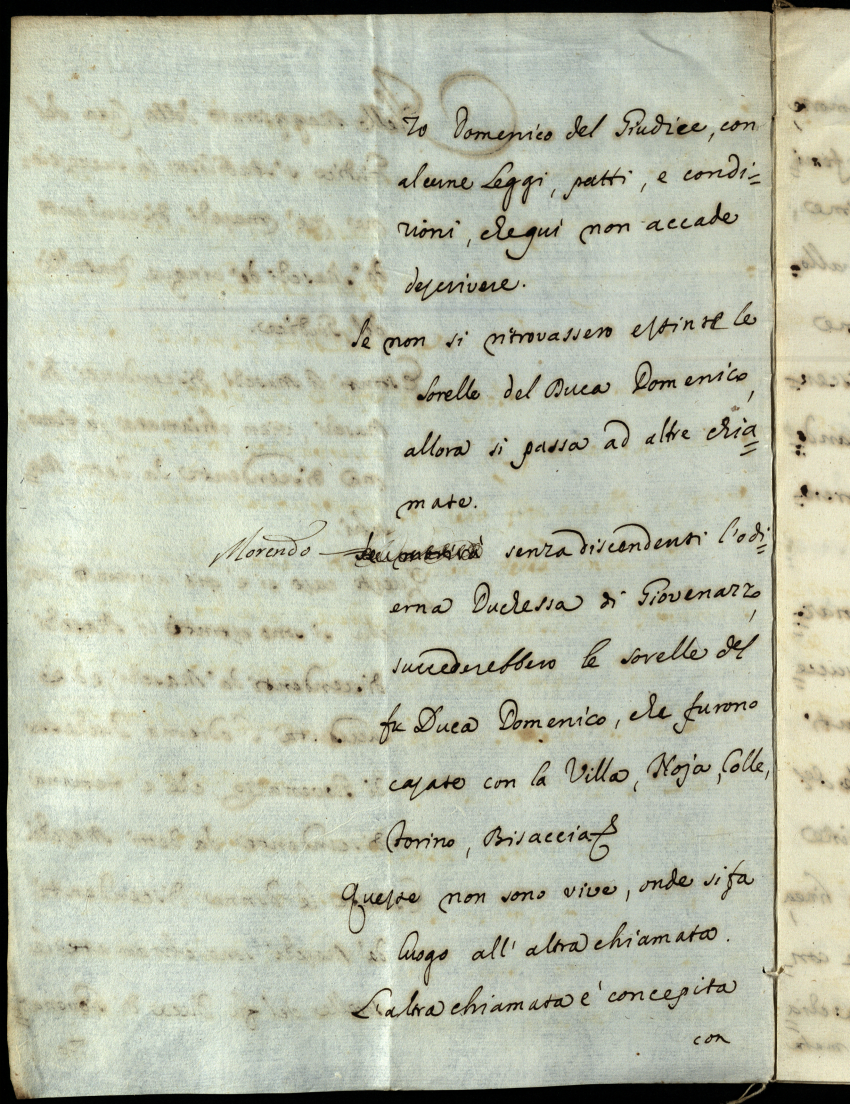 zo Domenico del Giudice, con
alcune Leggi, patti, e condi=
zioni, che qui non accade
descrivere.
Se non si ritrovassero estinte le
Sorelle del Duca Domenico,
allora si passa ad altre chia=
mate.
Morendo senza discendenti l'odi=
erna Duchessa di Giovenazzo,
succederebbero le sorelle del
fu Duca Domenico, che furono
casate con la Villa, Noja, Colle,
Torino, Bisaccia
Queste non sono vive, onde si fa
luogo all' altra chiamata.
L'altra chiamata è concepita
con